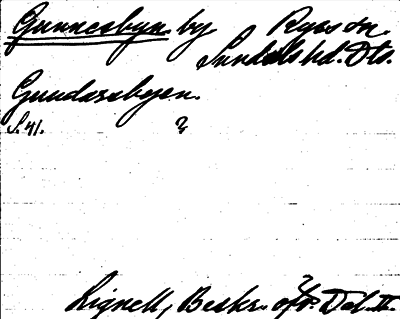 Gunnesbyn by Ryrs sn.
Sundals hd. Dls.
Gundersbyen.
S. 41. ?
Lignell, Beskr. öfv. Dal. II.